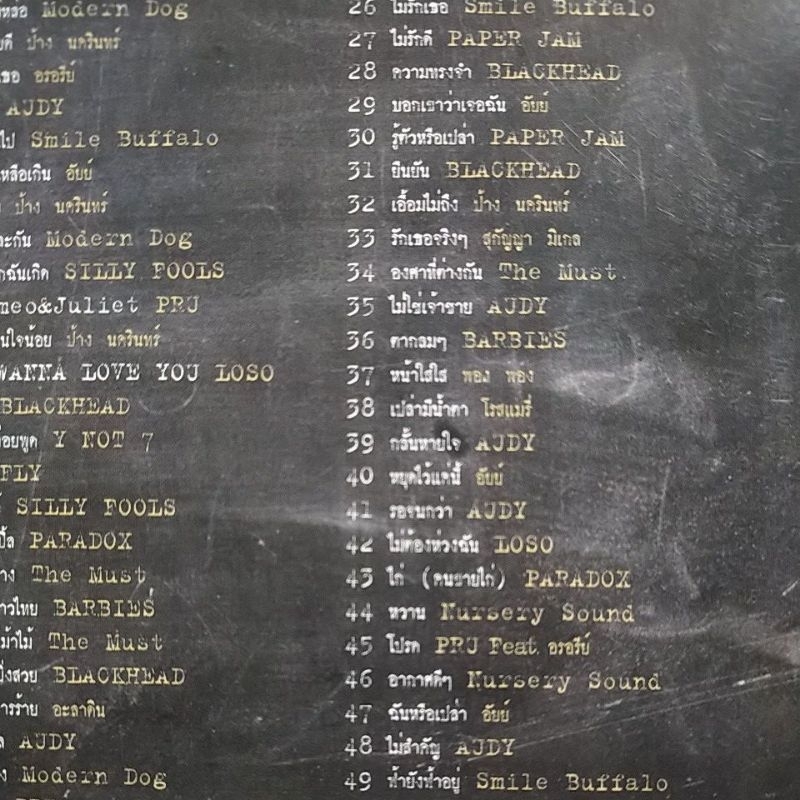 Modern Dog
ป้าง นครินทร์
อรอรีย์
AJDY
ไป Smile Buffalo
เหลือเกิน อัยย์
ป้าง นครินทร์
ละกัน Modern Dog
กฉันเกิด SILLY FOOLS
meo&Juliet PRU
นใจน้อย ป้าง นครินทร์
WANNA LOVE YOU LOSO
BLACKHEAD
่อยพูด Y NOT 7
FLY
SILLY FOOLS
PARADOX
าง The Must
าวไทย BARBIES
ม้าไม้ The Must
ยิ่งสวย BLACKHEAD
ารร้าย อะลาดิน
AJDY
Modern Dog
26 ไม่รักเธอ Smile Buffalo
27 ไม่รักดี PAPER JAM
28 ความทรงจำ BLACKHEAD
29 บอกเขาว่าเจอฉัน อัยย์
30 รู้ตัวหรือเปล่า PAPER JAM
31 ยืนยัน BLACKHEAD
32 เอื้อมไม่ถึง ป้าง นครินทร์
33 รักเธอจริงๆ สุกัญญา มิเกล
34 องศาที่ต่างกัน The Must
35 ไม่ใช่เจ้าชาย AJDY
36 ตากลมๆ BARBIES
37 หน้าใสใส พอง พอง
38 เปล่ามีน้ำตา โรสแมรี่
39 กลั้นหายใจ AJDY
40 หยุดไว้แค่นี้ อัยย์
41 รอจนกว่า AJDY
42 ไม่ต้องห่วงฉัน LOSO
43 ไก่ (คนขายไก่) PARADOX
44 หวาน Nursery Sound
45 โปรด PRU Feat. อรอรีย์
46 อากาศดีๆ Nursery Sound
47 ฉันหรือเปล่า อัยย์
48 ไม่สำคัญ AJDY
49 ฟ้ายังฟ้าอยู่ Smile Buffalo